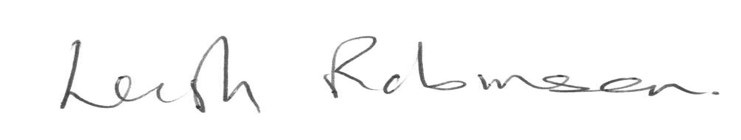 Leigh Robinson.